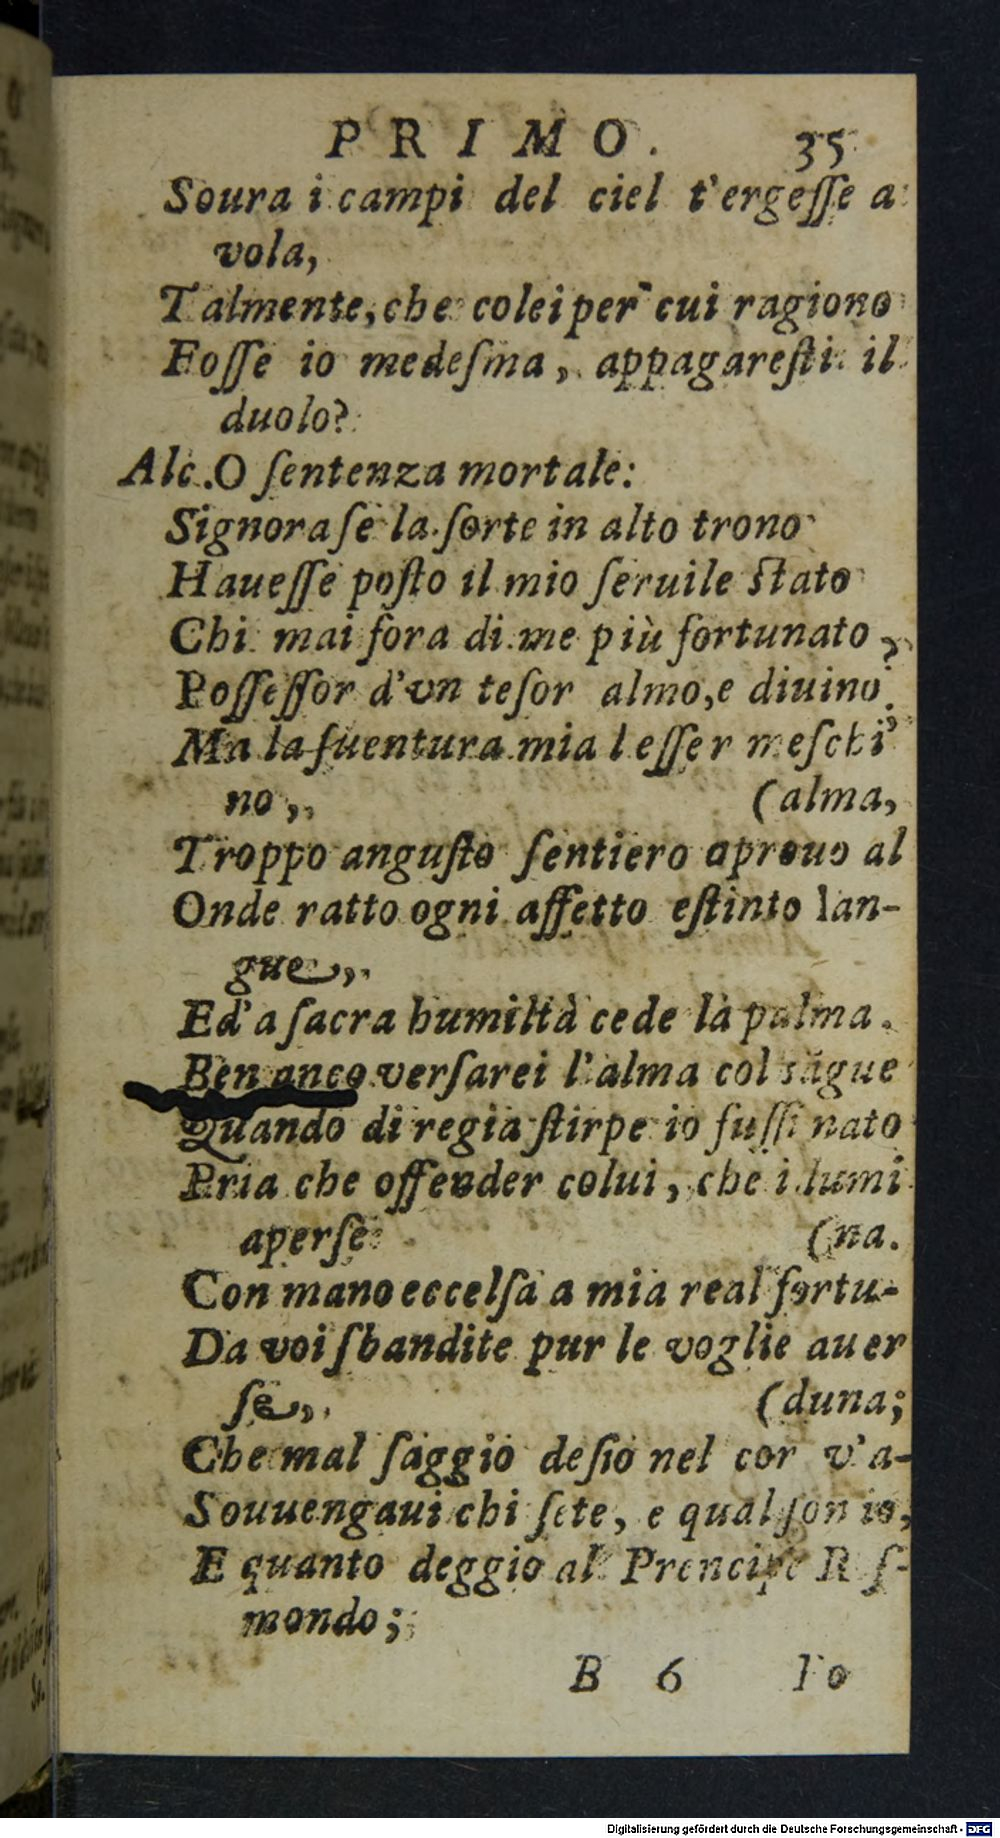 PRIMO. 35
Soura i campi del ciel t'ergeſſe a
vola,
Talmente, che colei per cui ragiono
Foſſe io medeſma, appagareſti il
duolo?
Alc. O ſentenza mortale:
Signora ſe la ſorte in alto trono
Haueſſe poſto il mio ſeruile ſtato
Chi mai fora di me più fortunato,
Poſſeſſor d'vn teſor almo, e diuino
Ma la ſuentura mia l'eſſer meſchi
no, (alma,
Troppo anguſto ſentiero aprouo al
Onde ratto ogni affetto eſtinto lan-
gue,
Ed'a ſacra humiltà cede la palma.
Ben anco verſarei l'alma col sãgue
Quando di regia ſtirpe io fuſſi nato
Pria che offender colui, che i lumi
aperſe (na.
Con mano eccelſa a mia real fortu-
Da voi ſbandite pur le voglie auer
ſe, (duna;
Che mal ſaggio deſio nel cor v'a-
Souuengaui chi ſete, e qual ſon io,
E quanto deggio al Prencipe Roſ-
mondo;
B 6 Io
Digitalisierung gefördert durch die Deutsche Forschungsgemeinschaft - DFG